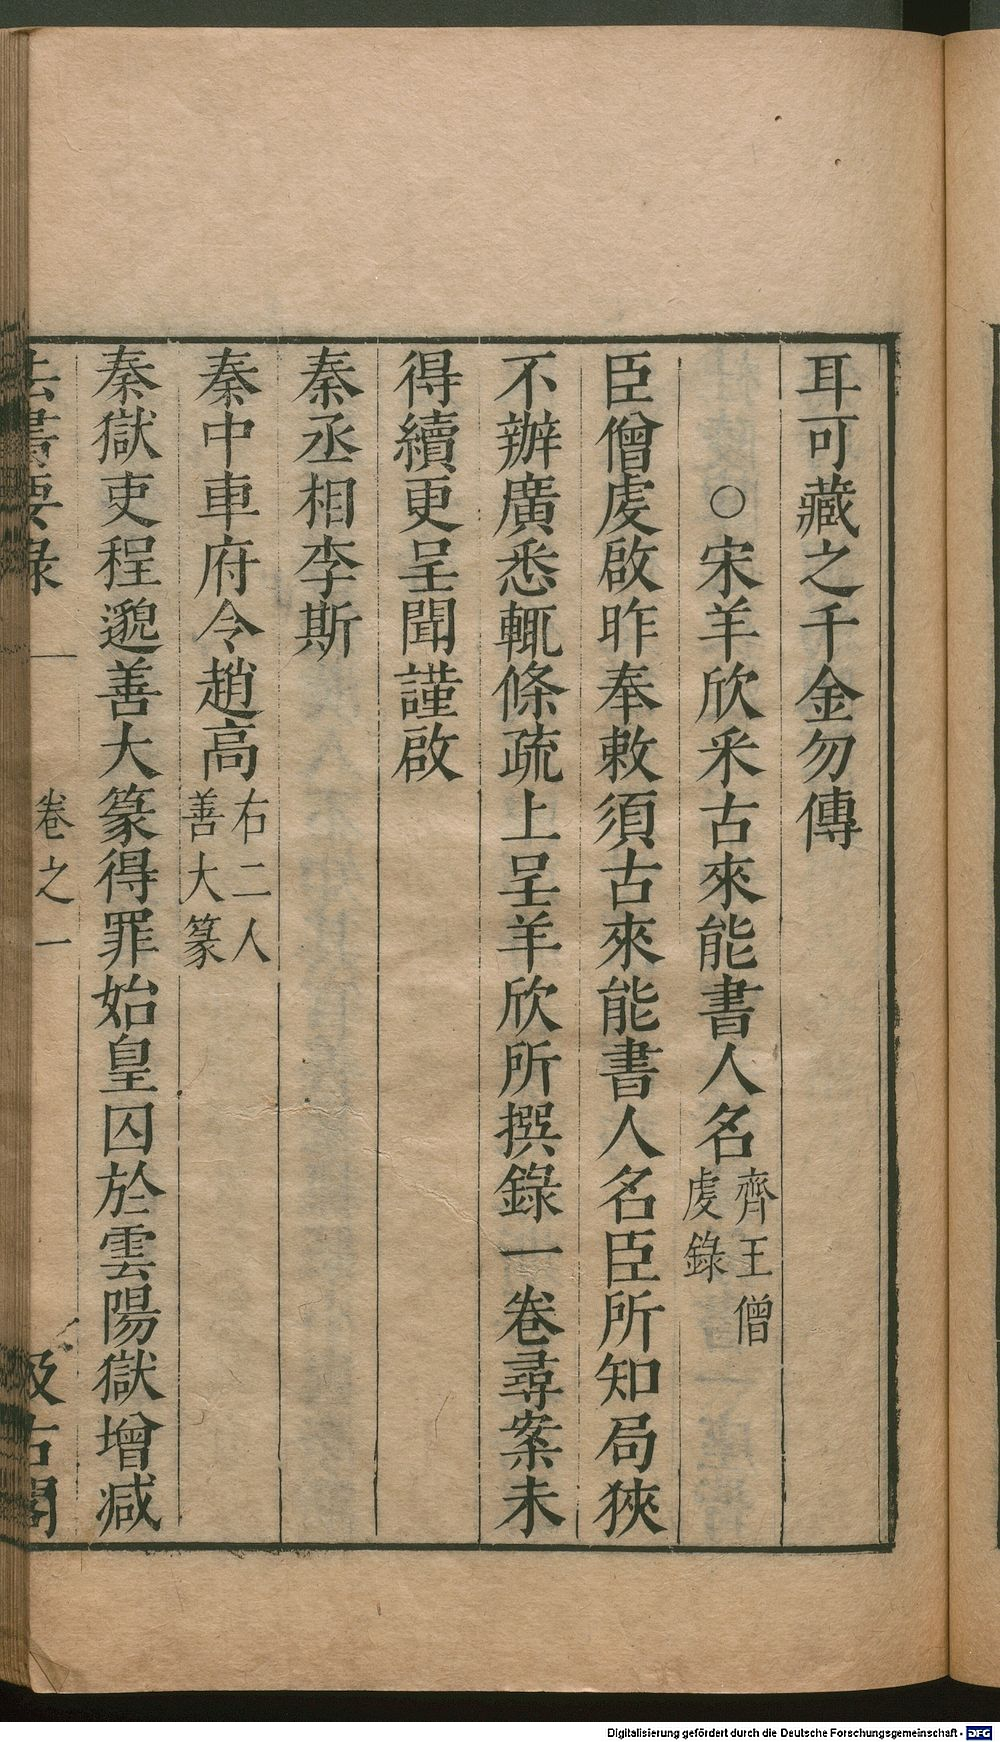 耳可藏之千金勿傳
○宋羊欣采古來能書人名 齊王僧
虔錄
臣僧虔啟昨奉敕須古來能書人名臣所知局狹
不辦廣悉輒條疏上呈羊欣所撰錄一卷尋案未
得續更呈聞謹啟
秦丞相李斯
秦中車府令趙高 右二人
善大篆
秦獄吏程邈善大篆得罪始皇囚於雲陽獄增减
法書要錄 卷之一 汲古閣
Digitalisierung gefördert durch die Deutsche Forschungsgemeinschaft - DFG